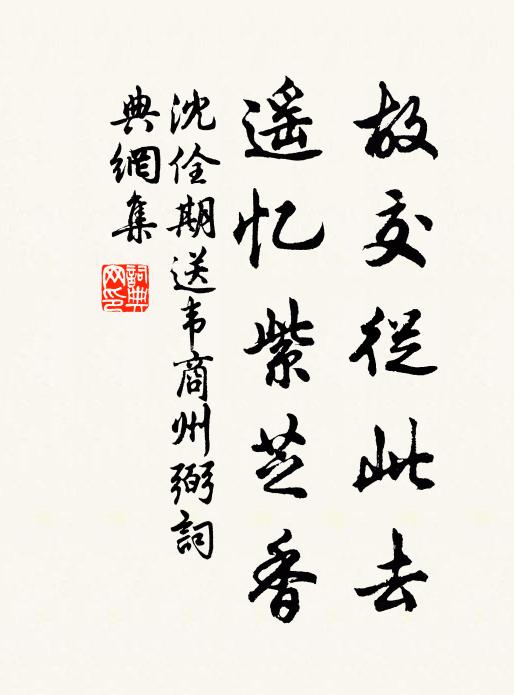 故交従此去
遥忆紫芝香
沈佺期送韦商州弼詞
典網集
詞典网印